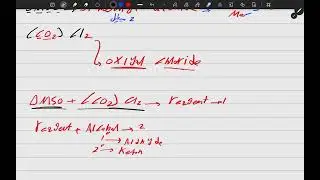 (CO2) Cl2
oxlyl chloride
DMSO + (CO2) Cl2 → reagent -1
reagent + Alcohol → 2
1° → Aldhyde
2° → Keton